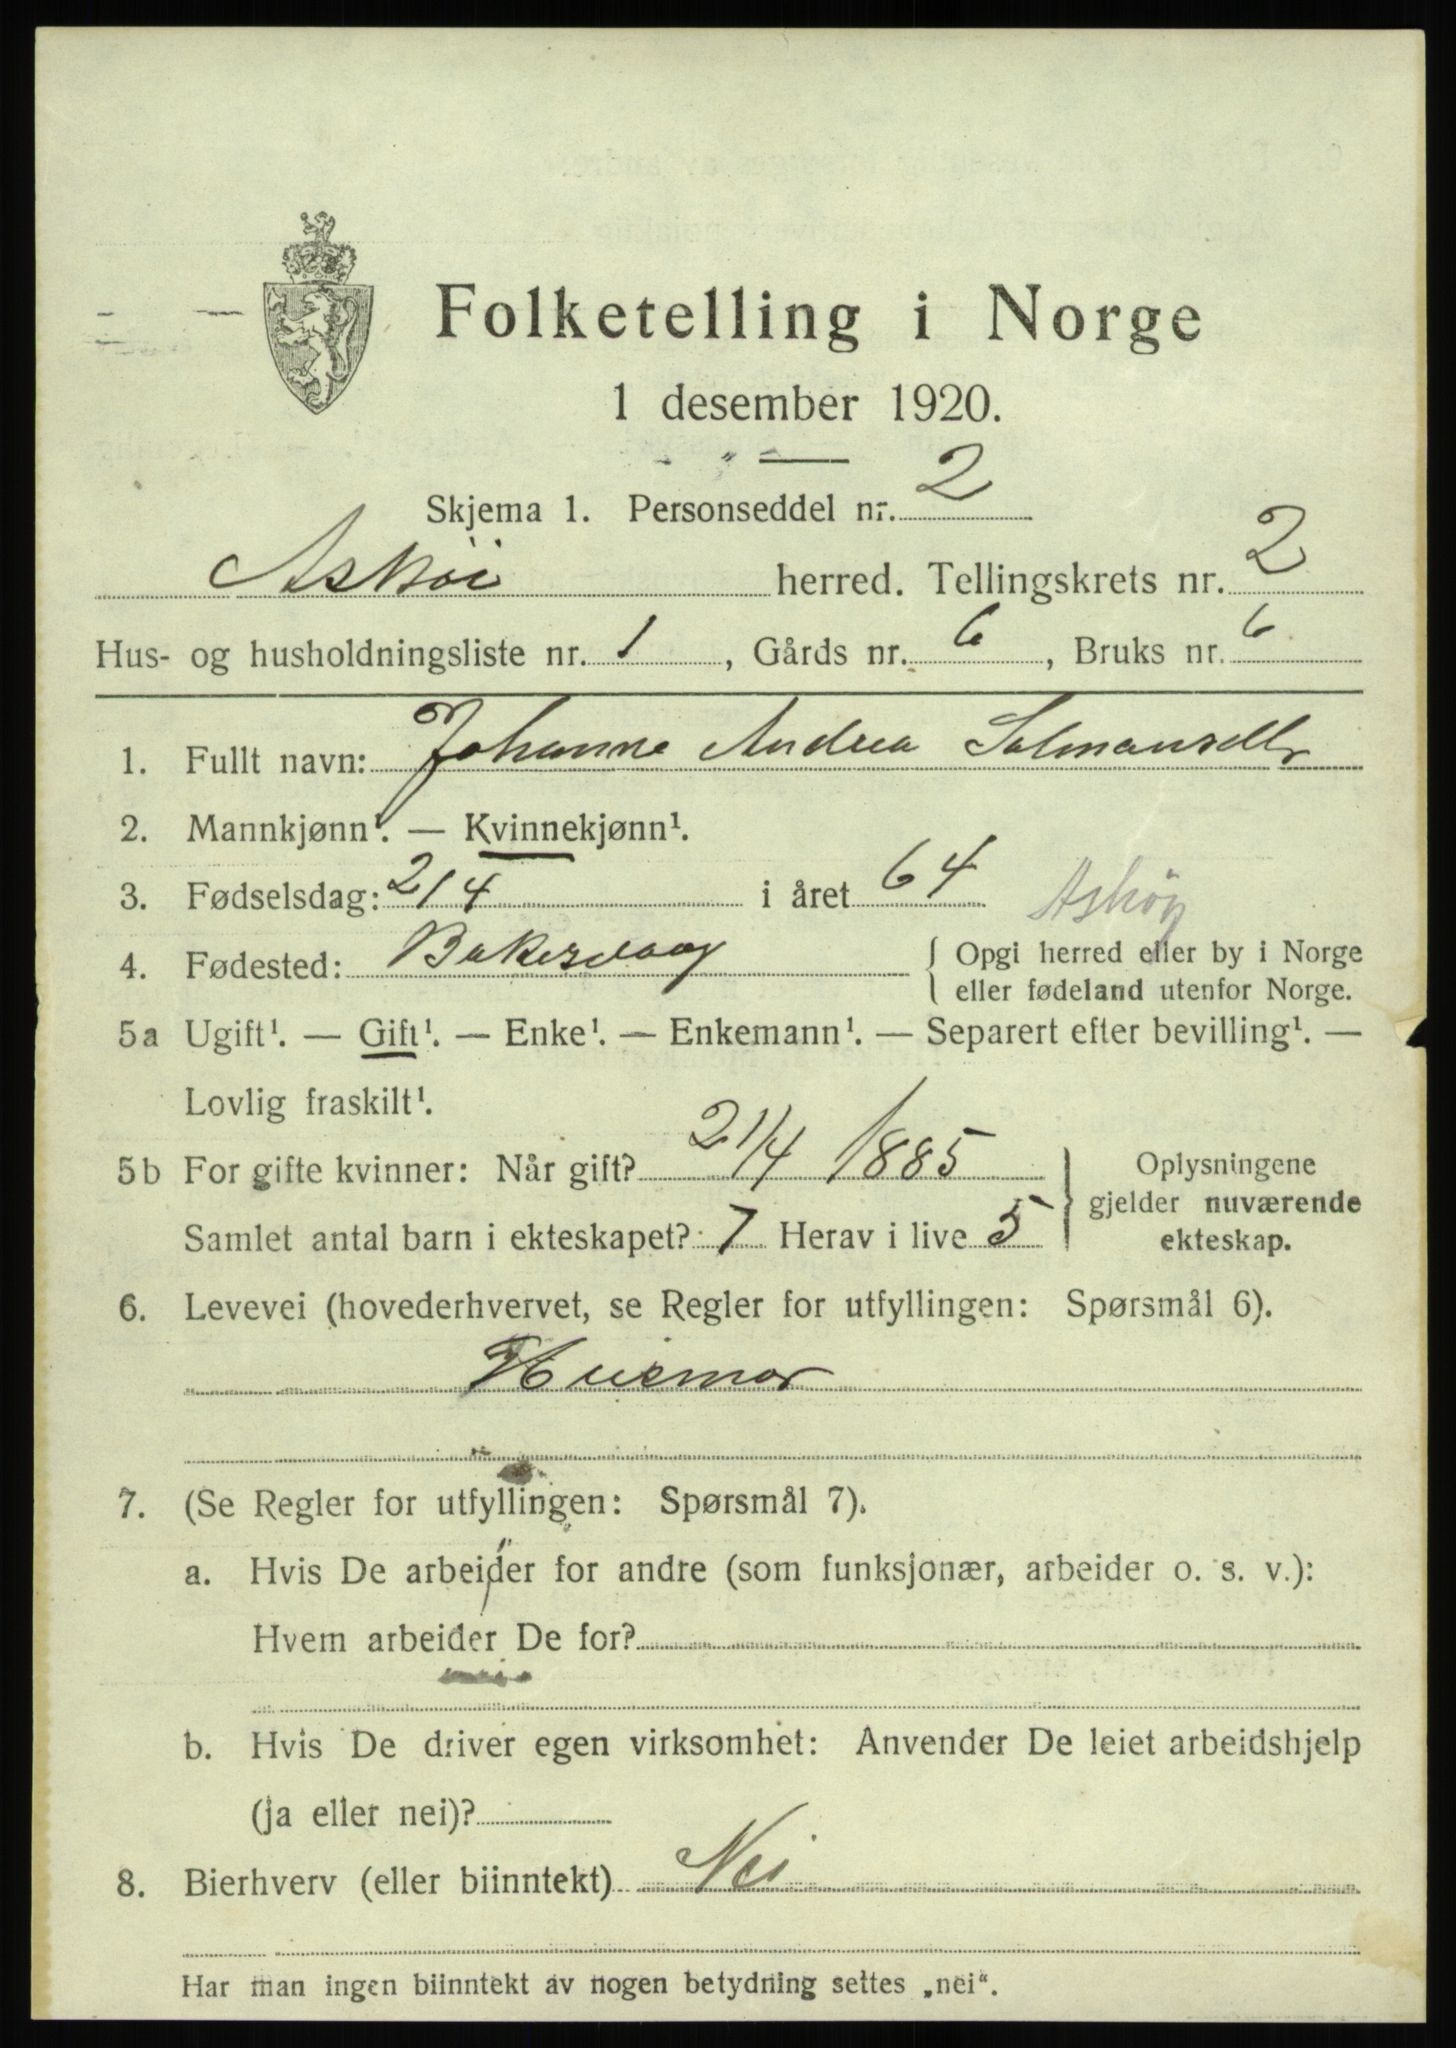 Folketelling i Norge
1 desember 1920.
Skjema 1. Personseddel nr. 2
Askøi herred. Tellingskrets nr. 2
Hus- og husholdningsliste nr. 1, Gårds nr. 6, Bruks nr. 6
1. Fullt navn: Johanne Andrea
2. Mannkjønn¹. — Kvinnekjønn¹.
3. Fødselsdag: 2/4 i året 64 Askøy
4. Fødested: { Opgi herred eller by i Norge
{ eller fødeland utenfor Norge.
5a Ugift¹. — Gift¹. — Enke¹. — Enkemann¹. — Separert efter bevilling¹. —
Lovlig fraskilt¹.
5b For gifte kvinner: Når gift? 21/4 1885
Samlet antal barn i ekteskapet? 7 Herav i live 5
Oplysningene
gjelder nuværende
ekteskap.
6. Levevei (hovederhvervet, se Regler for utfyllingen: Spørsmål 6).
Husmor
7. (Se Regler for utfyllingen: Spørsmål 7).
a. Hvis De arbeider for andre (som funksjonær, arbeider o. s. v.):
Hvem arbeider De for?
b. Hvis De driver egen virksomhet: Anvender De leiet arbeidshjelp
(ja eller nei)?
8. Bierhverv (eller biinntekt) Nei
Har man ingen biinntekt av nogen betydning settes „nei“.